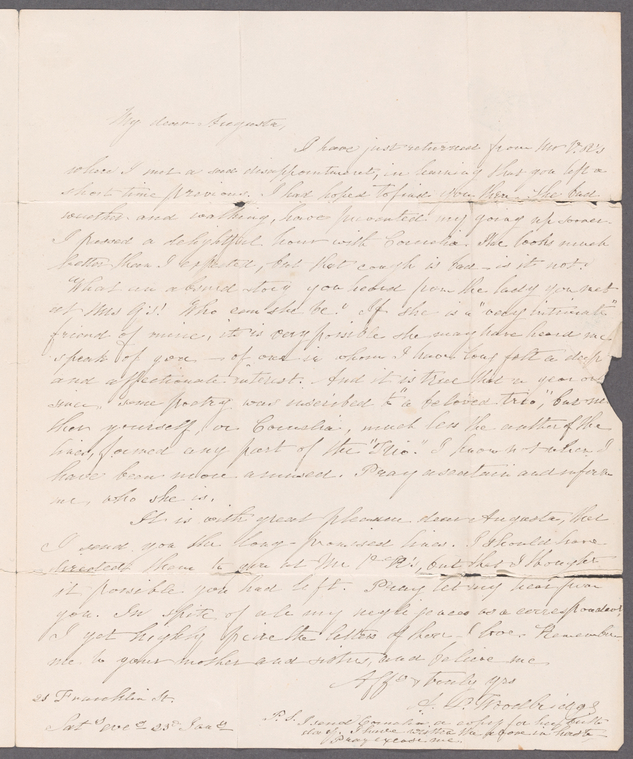 My dear Augusta,
I have just returned from Mr P. R's
where I met a sad disappointment, in learning that you left a
short time previous. I had hoped to find you there. The bad
weather and walking, have prevented my going up sooner.
I passed a delightful hour with Cornelia. She looks much
better than I expected, but that cough is bad - is it not?
What an absurd story you heard from the lady you met
at Mrs G's! Who can she be? If she is a "very intimate"
friend of mine, it is very possible she may have heard me
speak of you - of one in whom I have long felt a deep
and affectionate interest. And it is true that a year or
since, some poetry was inscribed to a beloved trio, but
than yourself, or Cornelia, much less the author of the
lines, formed any part of the "Trio." I know not when I
have been more amused. Pray ascertain and inform
me, who she is.
It is with great pleasure dear Augusta, that
I send you the long-promised lines. I should have
them to you at Mr P R's, but that I thought
it possible you had left. Pray let me hear from
you. In spite of all my negligences as a correspondent,
I yet highly prize the letters of those I love. Remember
me to your mother and sisters, and believe me
Affec & truly yrs
A. D. Woodbridge
25 Franklin St.
Sat eve 23 Jan
P.S. I send Cornelia a copy for her
day. I have written the above in haste
Pray excuse me